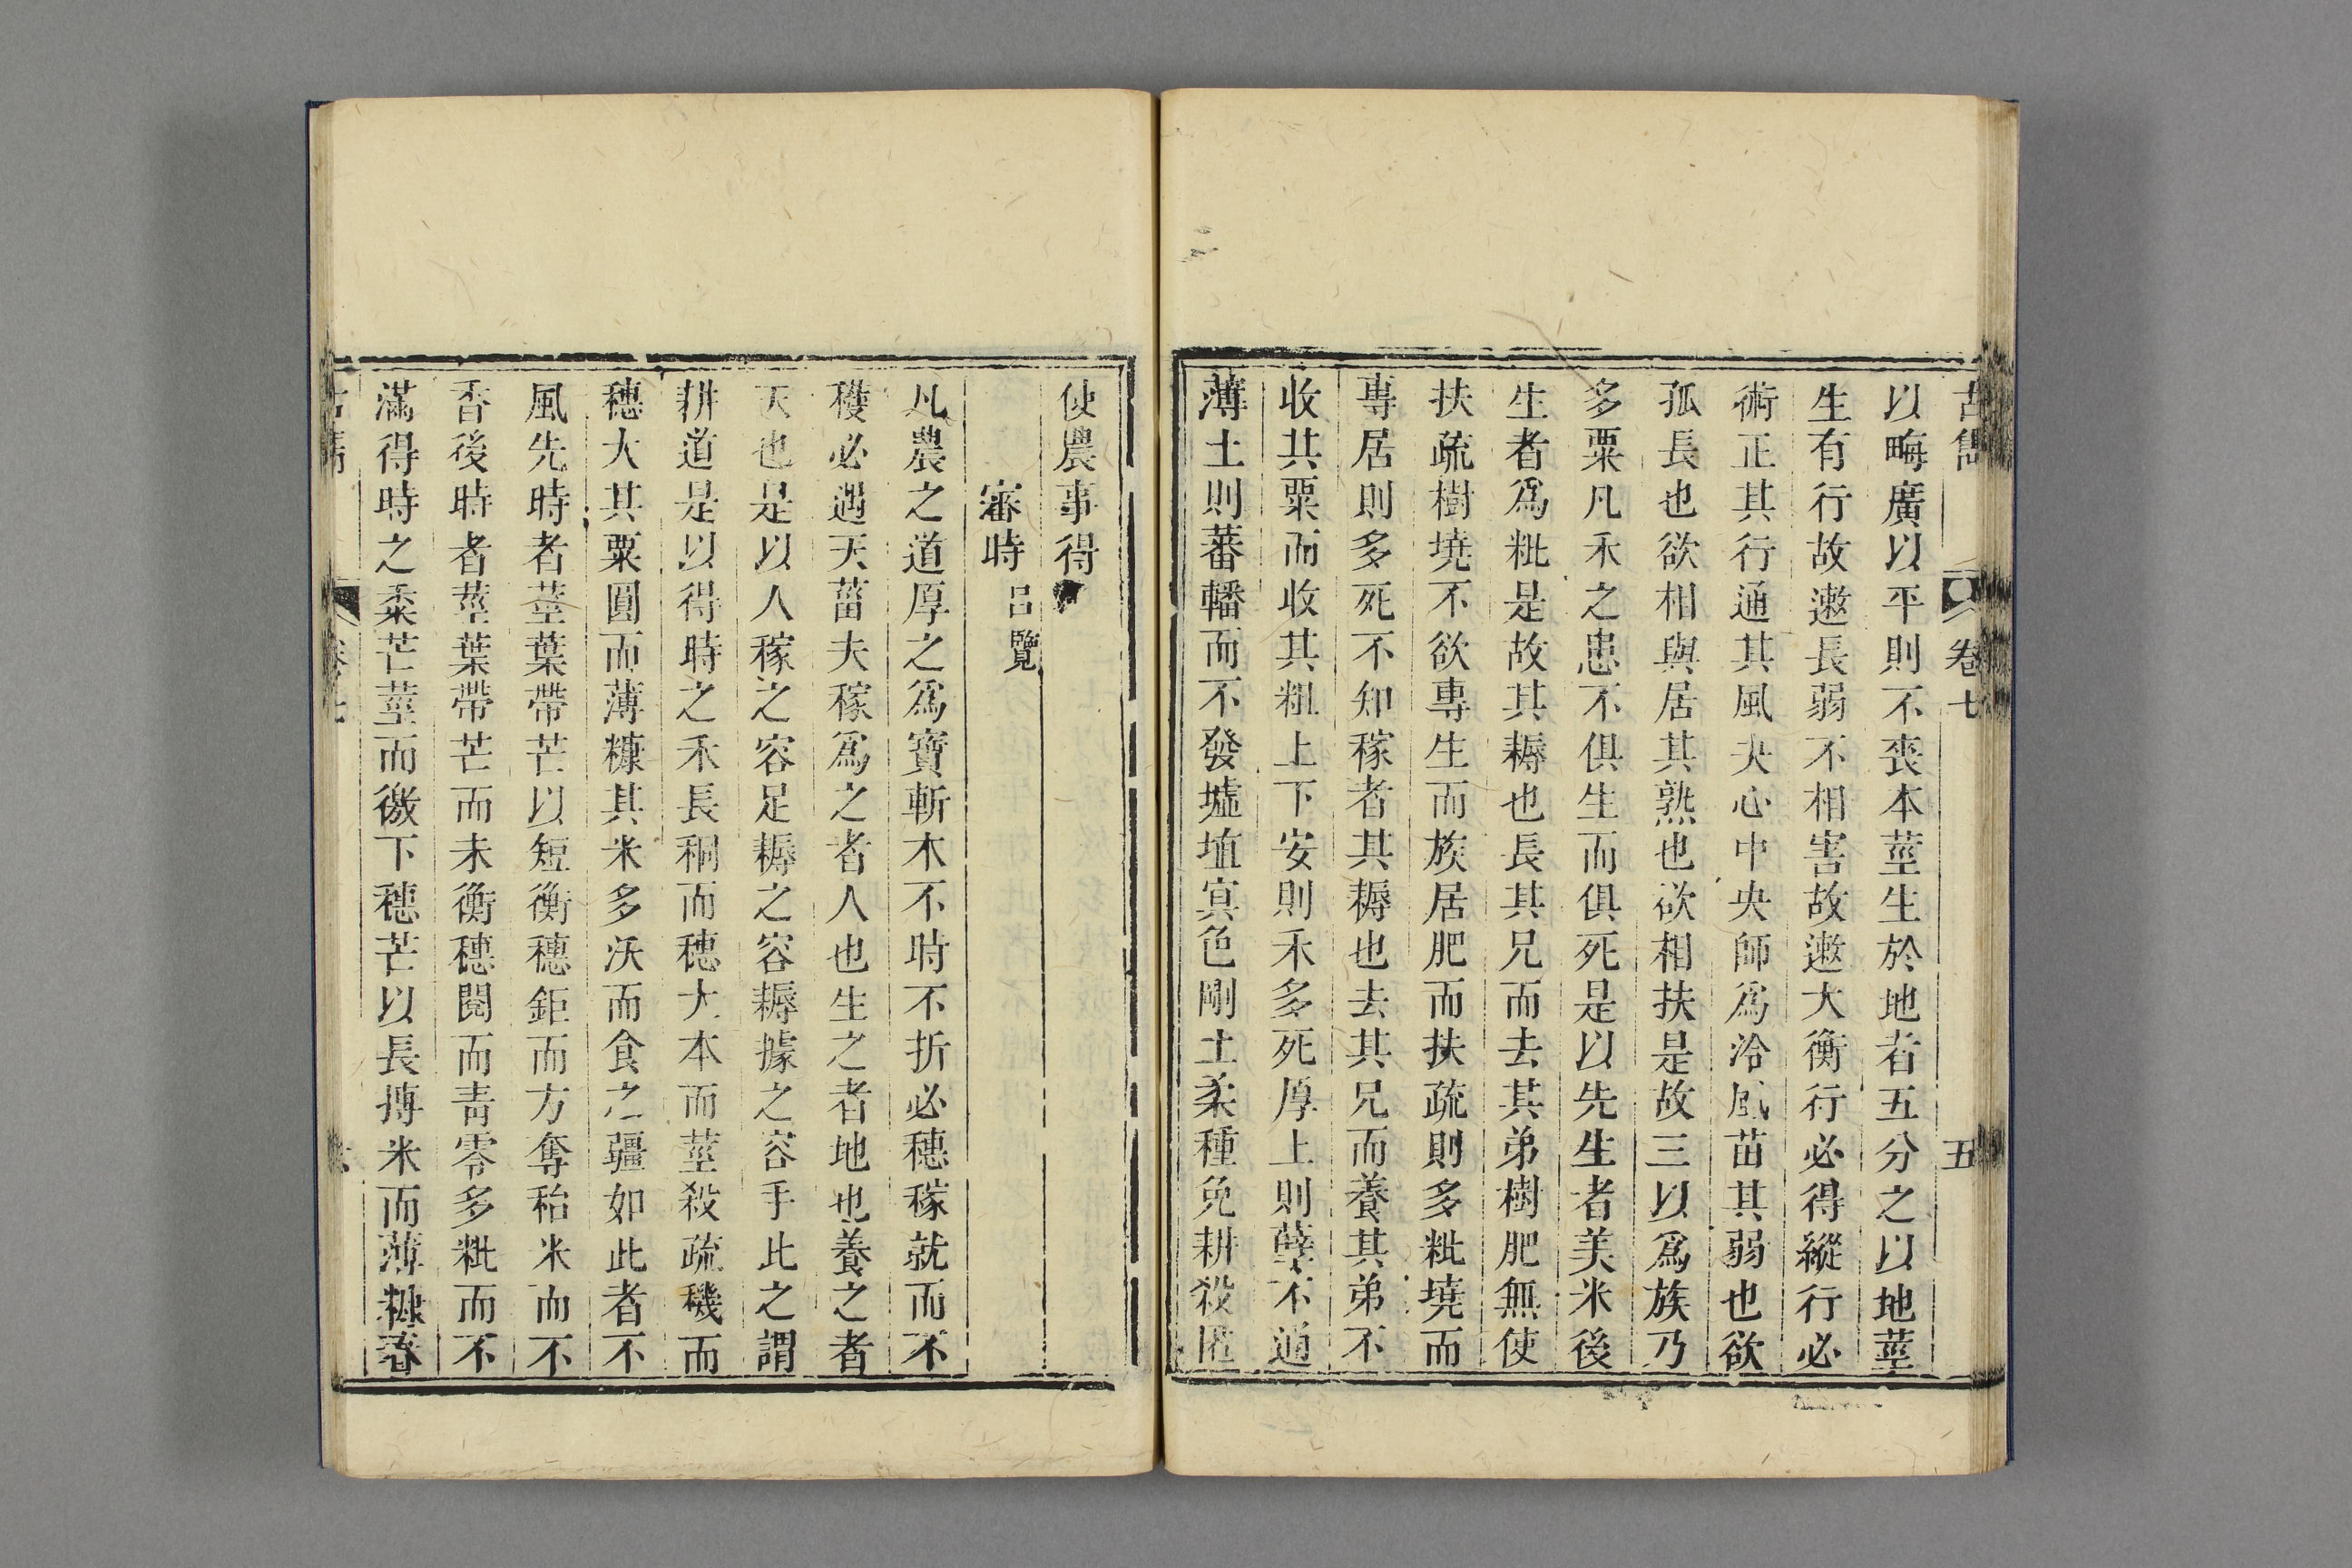 古雋 卷七 五
以畮廣以平則不喪本莖生於地者五分之以地莖
生有行故遬長弱不相害故遬大衡行必得縱行必
術正其行通其風夬心中央師爲泠風苗其弱也欲
孤長也欲相與居其熟也欲相扶是故三以爲族乃
多粟凡禾之患不俱生而俱死是以先生者美米後
生者爲粃是故其耨也長其兄而去其弟樹肥無使
扶疏樹墝不欲專生而族居肥而扶疏則多粃墝而
專居則多死不知稼者其耨也去其兄而養其弟不
收其粟而收其粗上下安則禾多死厚土則孽不通
薄土則蕃轓而不發壚埴冥色剛土柔種免耕殺匿
使農事得
審時 呂覽
凡農之道厚之爲寶斬木不時不折必穗稼就而不
穫必遇天菑夫稼爲之者人也生之者地也養之者
天也是以人稼之容足耨之容耨據之容手此之謂
耕道是以得時之禾長秱而穗大本而莖殺疏穖而
穗大其粟圓而薄糠其米多沃而食之彊如此者不
風先時者莖葉帶芒以短衡穗鉅而方奪秮米而不
香後時者莖葉帶芒而末衡穗閱而青零多粃而不
滿得時之黍芒莖而徼下穗芒以長摶米而薄糠舂